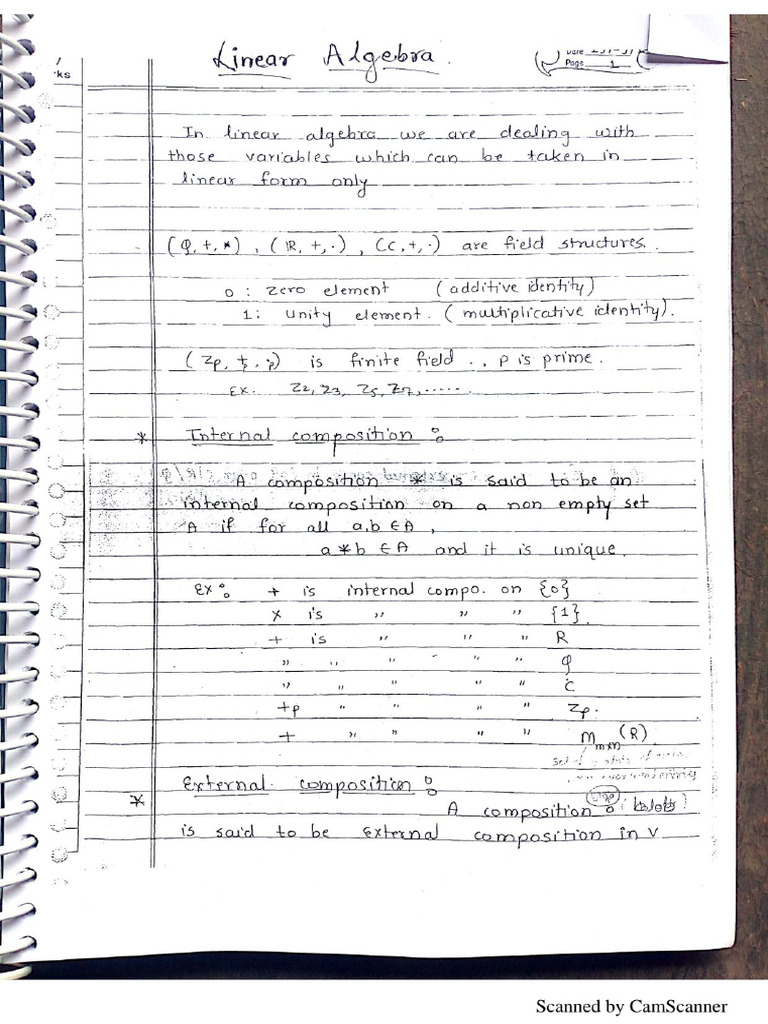 Linear Algebra.
Date
Page 1
ks
In linear algebra we are dealing with
those variables which can be taken in
linear form only
(Q, +, *), (IR, +, ·), (C, +, ·) are field structures.
0 : zero element (additive identity)
1: unity element. (multiplicative identity).
(Zp, +p, ·p) is finite field ., p is prime.
Ex. Z2, Z3, Z5, Z7, ......
* Internal composition :
A composition * is said to be an
internal composition on a non empty set
A if for all a,b ∈ A,
a * b ∈ A and it is unique.
Ex : + is internal compo. on {0}
x is " " " {1}
+ is " " " R
" " " " " Q
" " " " " C
+p " " " " Zp.
+ " " " " Mmxn (R)
External composition :
* A composition :
is said to be external composition in V
Scanned by CamScanner